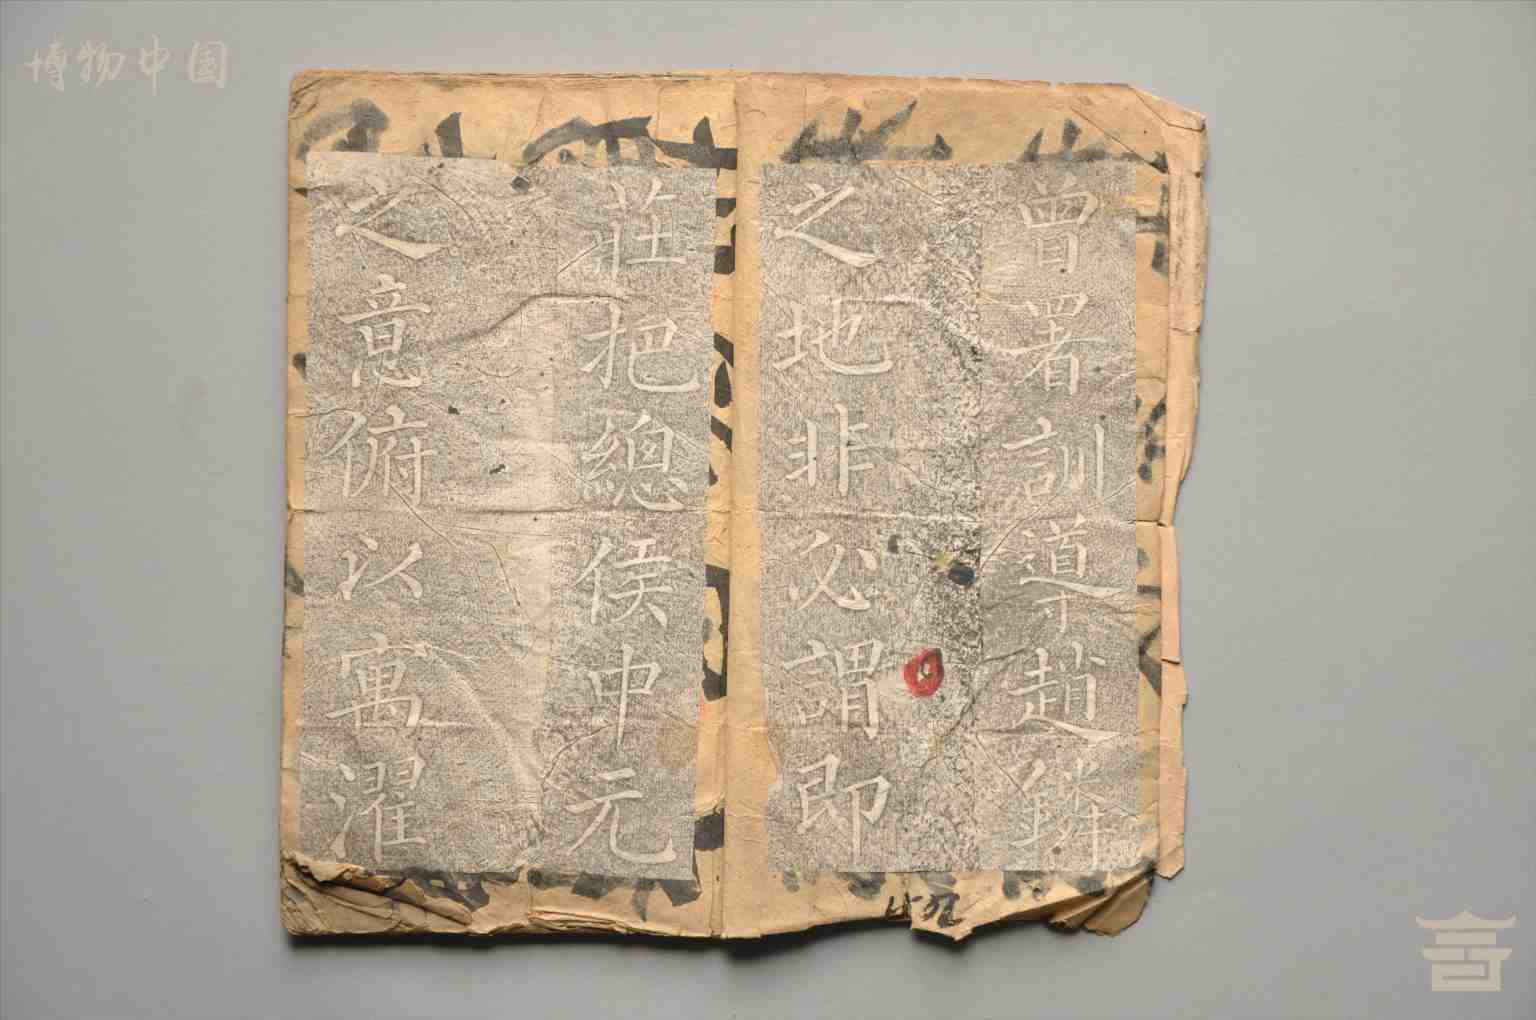 博物中国
曾署訓導趙鏻
之地非必謂即
莊把總侯中元
之意俯以寓濯